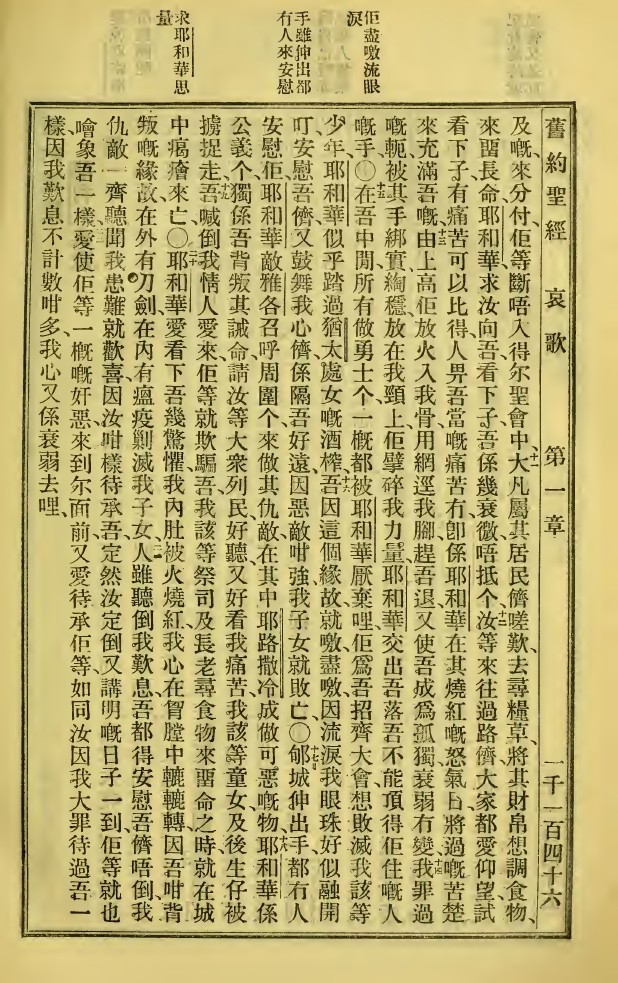 佢盡噭流眼
淚
手雖伸出都
冇人來安慰
求耶和華思
量
舊約聖經 哀歌 第一章 一千一百四十六
及嘅來分付佢等斷唔入得尔聖會中十一大凡屬其居民儕嗟歎去尋糧草將其財帛想調食物
來畱長命耶和華求汝向吾看下子吾係幾衰微唔抵个十二汝等來往過路儕大家都愛仰望試
看下子有痛苦可以比得人畀吾當嘅痛苦冇卽係耶和華在其燒紅嘅怒氣日將過嘅苦楚
來充滿吾嘅十三由上高佢放火入我骨用網逕我腳趕吾退又使吾成爲孤獨衰弱有變十四我罪過
嘅軛被其手綁實綯穩放在我頸上佢擘碎我力量耶和華交出吾落吾不能頂得佢住嘅人
嘅手〇十五在吾中間所有做勇士个一概都被耶和華厭棄哩佢爲吾招齊大會想敗滅我該等
少年耶和華似乎踏過猶太處女嘅酒榨十六吾因這個緣故就噭盡噭因流淚我眼珠好似融開
叮安慰吾儕又鼓舞我心儕係隔吾好遠因惡敵咁強我子女就敗亡〇十七郇城伸出手都冇人
安慰佢耶和華敵雅各召呼周圍个來做其仇敵在其中耶路撒冷成做可惡嘅物十八耶和華係
公義个獨係吾背叛其誡命請汝等大衆列民好聽又好看我痛苦我該等童女及後生仔被
擄捉走十九吾喊倒我情人愛來佢等就欺騙吾我該等祭司及長老尋食物來畱命之時就在城
中癘瘡來亡〇二十耶和華愛看下吾幾驚懼我內肚被火燒紅我心在胷膛中轆轆轉因吾咁背
叛嘅緣故在外有刀劍在內有瘟疫剿滅我子女二一人雖聽倒我歎息吾都得安慰吾儕唔倒我
仇敵一齊聽聞我患難就歡喜因汝咁樣待承吾定然汝定倒又講明嘅日子一到佢等就也
噲象吾一樣二二愛使佢等一概嘅奸惡來到尔面前又愛待承佢等如同汝因我大罪待過吾一
樣因我歎息不計數咁多我心又係衰弱去哩